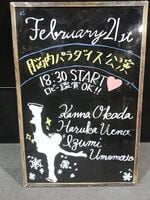 February 21st
脳内パラダイス公演
18:30 START
DC・鑑賞OK!!
Kanna Okada
Haruka Ueno
Izumi
Umemoto